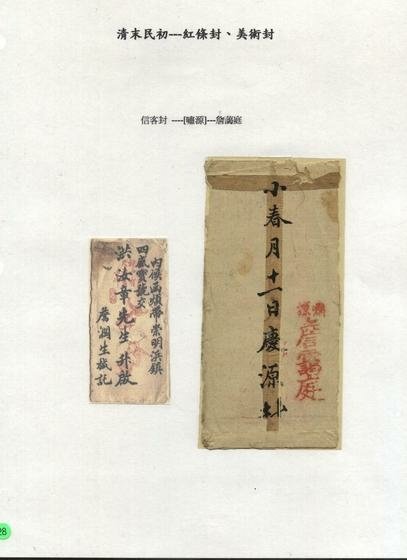 清末民初---紅條封、美術封
信客封 ----[嘯源]---詹藹庭
內候函順帶崇明浜鎮
四咸寶號交
洪汝章先生升啟
詹潤生緘託
小春月十一日慶源封
28